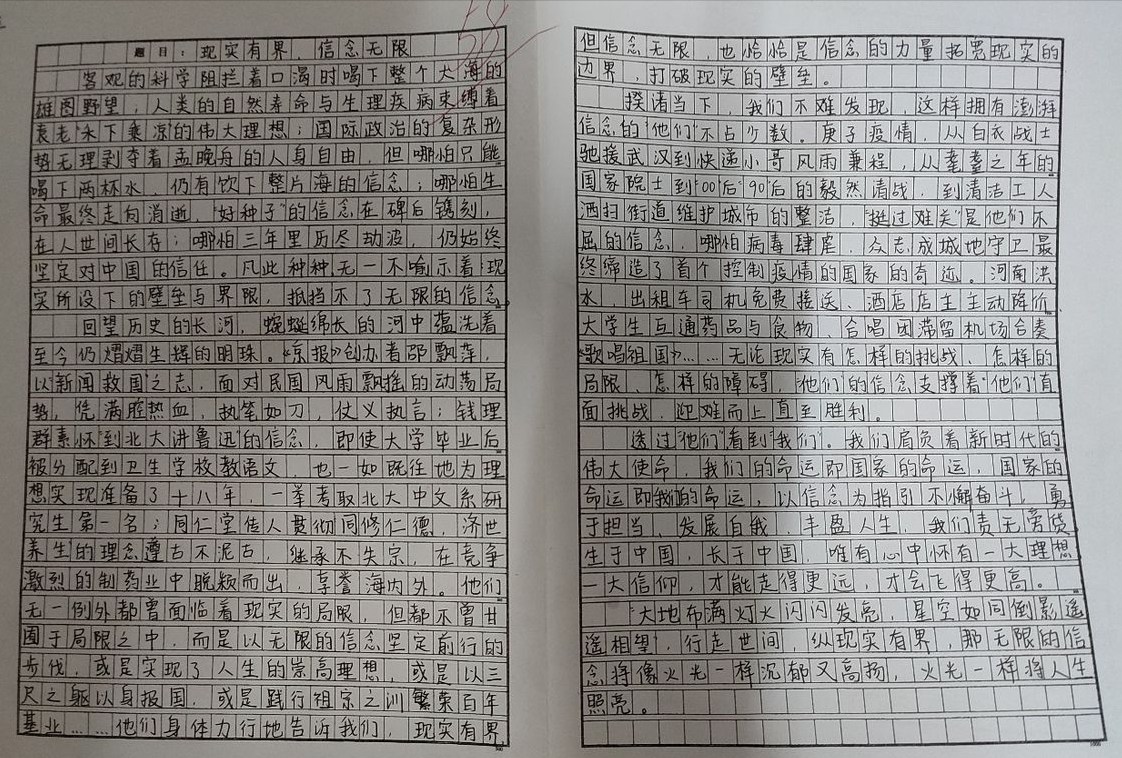 58
题目：现实有界，信念无限
客观的科学阻拦着口渴时喝下整个大海的
雄图野望，人类的自然寿命与生理疾病束缚着
袁老“禾下乘凉”的伟大理想；国际政治的复杂形
势无理剥夺着孟晚舟的人身自由，但哪怕只能
喝下两杯水，仍有饮下整片海的信念；哪怕生
命最终走向消逝，“好种子”的信念在碑后镌刻，
在人世间长存；哪怕三年里历尽劫波，仍始终
坚定对中国的信任。凡此种种，无一不喻示着：现
实所设下的壁垒与界限，抵挡不了无限的信念。
回望历史的长河，蜿蜒绵长的河中蕴洗着
至今仍熠熠生辉的明珠。《京报》创办者邵飘萍，
以“新闻救国”之志，面对民国风雨飘摇的动荡局
势，凭满腔热血，执笔如刀，仗义执言；钱理
群素怀“到北大讲鲁迅”的信念，即使大学毕业后
被分配到卫生学校教语文，也一如既往地为理
想实现准备了十八年，一举考取北大中文系研
究生第一名；同仁堂传人贯彻“同修仁德，济世
养生”的理念，遵古不泥古，继承不失宗，在竞争
激烈的制药业中脱颖而出，享誉海内外。他们
无一例外都曾面临着现实的局限，但都不曾甘
囿于局限之中，而是以无限的信念坚定前行的
步伐，或是实现了人生的崇高理想，或是以三
尺之躯以身报国，或是践行祖宗之训繁荣百年
基业……他们身体力行地告诉我们，现实有界，
但信念无限，也恰恰是信念的力量拓宽现实的
边界，打破现实的壁垒。
揆诸当下，我们不难发现，这样拥有澎湃
信念的“他们”不占少数。庚子疫情，从白衣战士
驰援武汉到快递小哥风雨兼程，从耄耋之年的
国家院士到“00后”“90后”的毅然请战，到清洁工人
洒扫街道维护城市的整洁，“挺过难关”是他们不
屈的信念，哪怕病毒肆虐，众志成城地守卫最
终缔造了首个控制疫情的国家的奇迹。河南洪
水，出租车司机免费接送、酒店店主主动降价
大学生互通药品与食物、合唱团滞留机场合奏
《歌唱祖国》……无论现实有怎样的挑战、怎样的
局限、怎样的障碍，“他们”的信念支撑着“他们”直
面挑战，迎难而上直至胜利。
透过“他们”看到“我们”。我们肩负着新时代的
伟大使命，我们的命运即国家的命运，国家的
命运即我们的命运，以信念为指引不懈奋斗，勇
于担当，发展自我，丰盈人生，我们责无旁贷
生于中国，长于中国，唯有心中怀有一大理想
一大信仰，才能走得更远，才会飞得更高。
“大地布满灯火闪闪发亮，星空如同倒影遥
遥相望”，行走世间，纵现实有界，那无限的信
念将像火光一样沉郁又高扬，火光一样将人生
照亮。